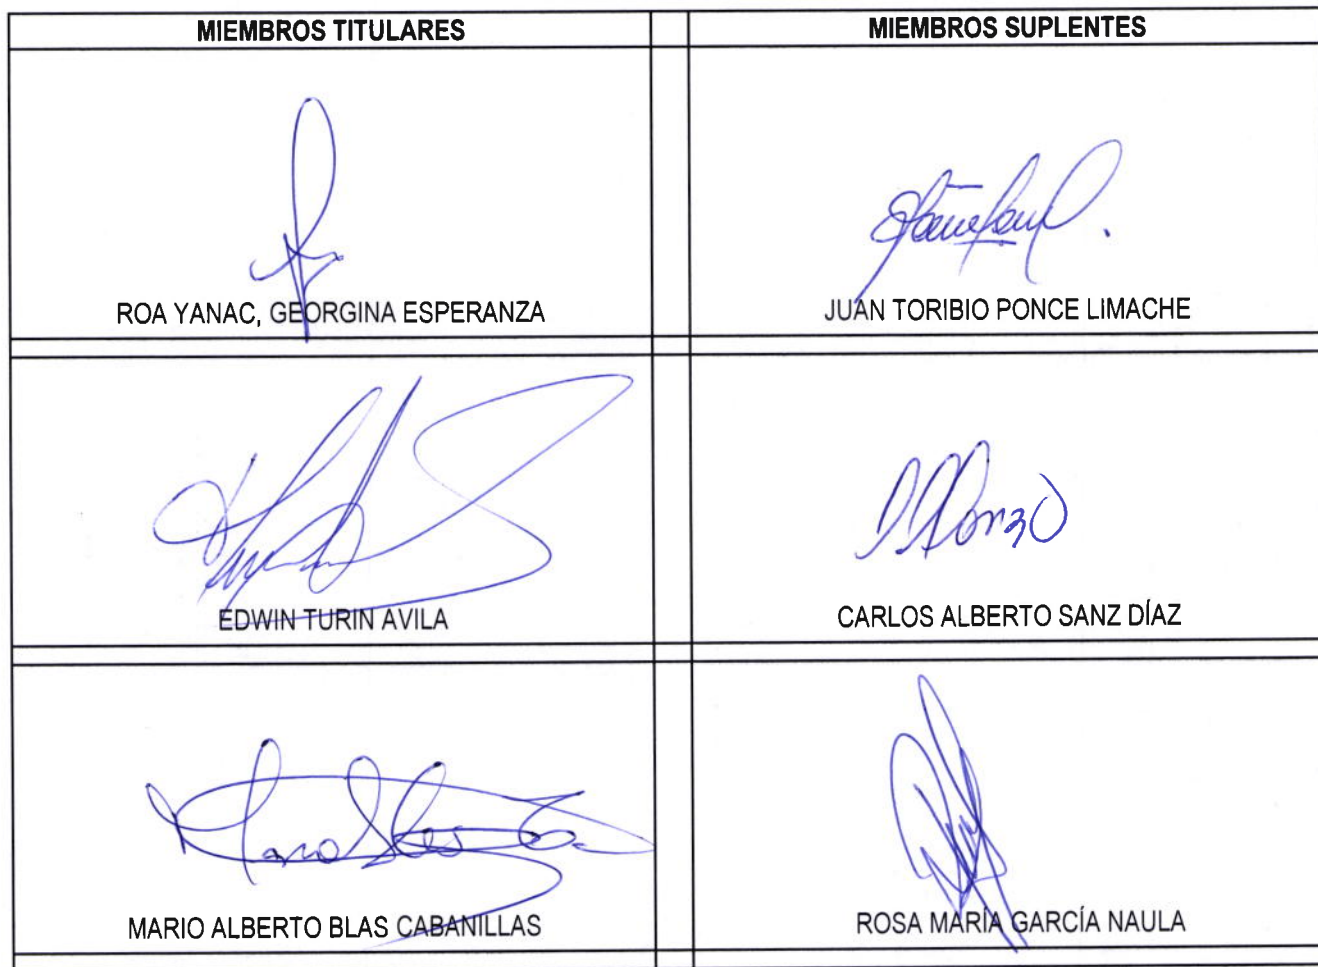 MIEMBROS TITULARES
MIEMBROS SUPLENTES
ROA YANAC, GEORGINA ESPERANZA
JUAN TORIBIO PONCE LIMACHE
EDWIN TURIN AVILA
CARLOS ALBERTO SANZ DÍAZ
MARIO ALBERTO BLAS CABANILLAS
ROSA MARÍA GARCÍA NAULA